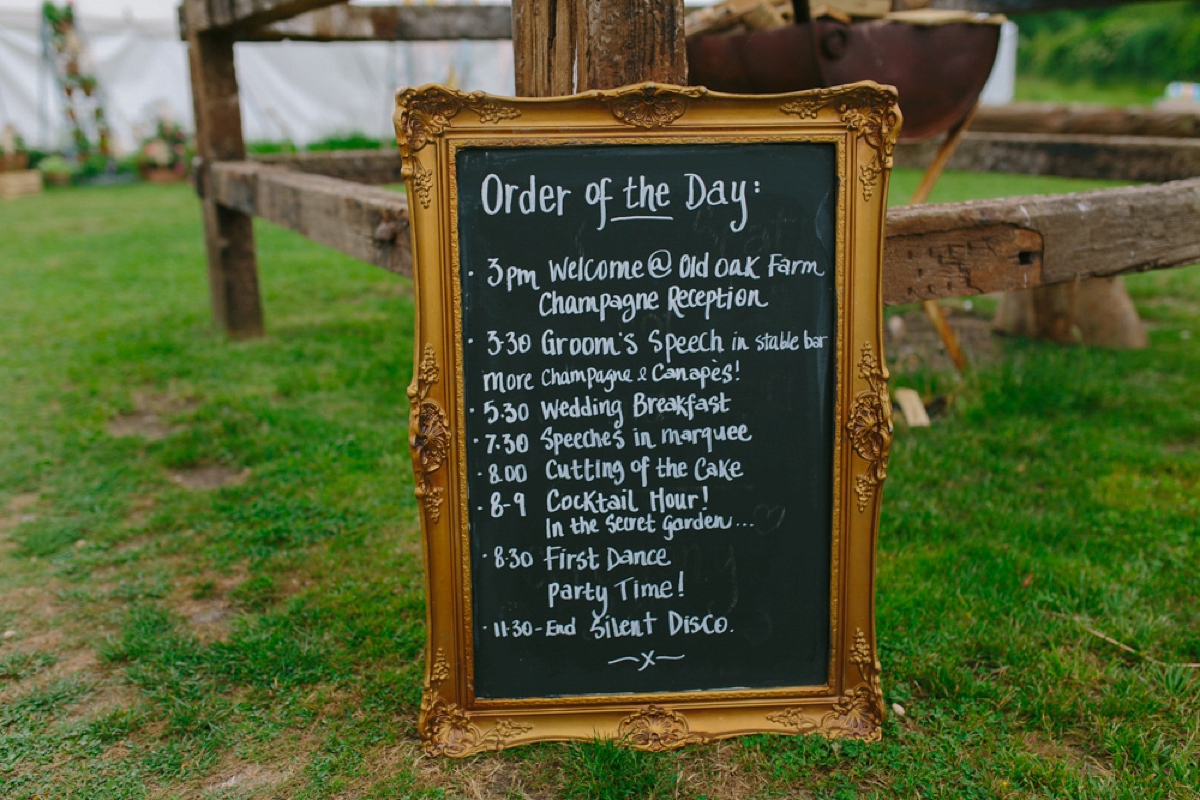 Order of the Day:
· 3pm Welcome @ Old Oak Farm
Champagne Reception
· 3.30 Groom's Speech in stable bar
more Champagne & Canapés!
· 5.30 Wedding Breakfast
· 7.30 Speeches in marquee
· 8.00 Cutting of the Cake
· 8-9 Cocktail Hour!
In the Secret Garden...
· 8.30 First Dance
party Time!
· 11.30 - End Silent Disco.
~x~